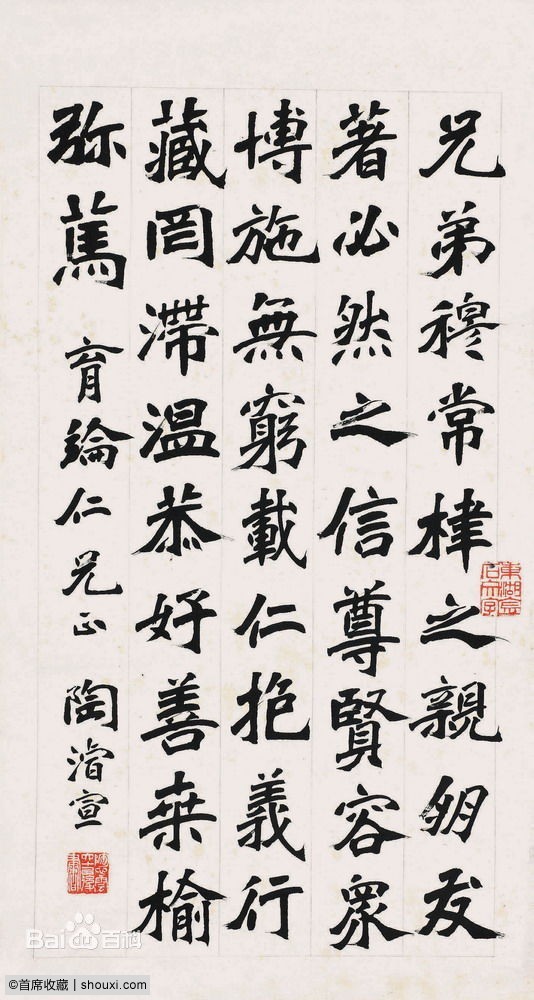 兄弟穆常棣之親朋友
著必然之信尊賢容眾
博施無窮載仁抱義行
藏罔滯温恭好善桒榆
弥篤
育綸仁兄正
陶濬宣
Bai百科
©首席收藏 | shouxi.com